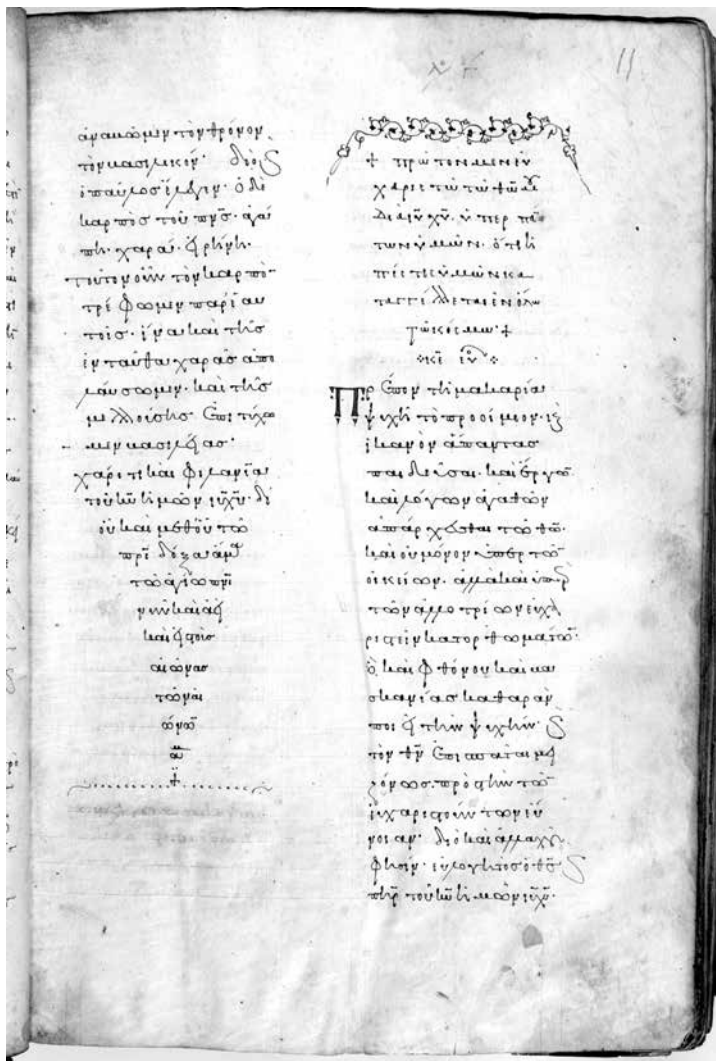 11
ἀνακώμεν τὸν θρόνον
τὸν βασιλικόν· διὸ ϗ
ὁ παῦλος ἔλεγεν· ὁ δὲ
καρπὸς τοῦ πν̅ς· ἀγά
πη· χαρά· εἰρήνη·
τοῦτον οὖν τὸν καρπὸ̅
τρέφωμεν παρ' ἑαυ
τοῖς· ἵνα καὶ τῆς
ἐνταῦθα χαρᾶς ἀπο
λαύσωμεν· καὶ τῆς
μελλούσης ἐπιτύχω
μεν βασιλείας·
χάριτι καὶ φιλαν̅ία
τοῦ κ̅υ ἡμῶν ι̅υ χ̅υ· δι
οὗ καὶ μεθ' οὗ τῶ
π̅ρι δόξα ἅμα
τῶ ἁγίω πν̅ι
νῦν καὶ ἀεὶ
καὶ εἰς τοὺς
αἰῶνας
τῶν αἰ
ώνω̅
+
+ πρῶτον μὲν εὐ
χαριστῶ τῶ θ̅ω μ̅ου
διὰ ι̅υ χ̅υ· ὑπὲρ πάν
των ὑμῶν· ὅτι ἡ
πίστις ὑμῶν κα
ταγγέλλεται ἐν ὅλω
τῶ κόσμω +
Πρέπον τῆ μακαρία
ψυχῆ τὸ προοίμιον· ϗ
ἱκανὸν ἅπαντας
παιδεῦσαι· καὶ ἔργω̅
καὶ λόγων ἀγαθῶν
ἀπάρχεσθαι τῶ θ̅ω·
καὶ οὐ μόνον ὑπὲρ τῶ̅
οἰκείων· ἀλλὰ καὶ ὑπὲρ
τῶν ἀλλοτρίων εὐχα
ριστεῖν κατορθωμάτω̅·
ὃ καὶ φθόνου καὶ βα
σκανίας καθαρὰν
ποιεῖ τὴν ψυχήν· ϗ
τὸν θ̅ν ἐπισπᾶται μει
ζόνως· πρὸς τὴν τῶ̅
εὐχαριστούντων εὔ
νοιαν· διὸ καὶ ἀλλαχοῦ
φησίν· εὐλογητὸς ὁ θ̅ς ϗ
π̅ηρ τοῦ κ̅υ ἡμῶν ι̅υ χ̅υ·